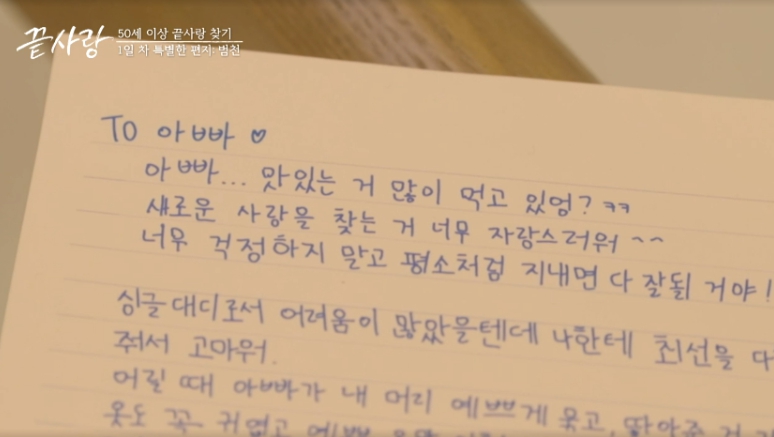 끝사랑
50세 이상 끝사랑 찾기
1일 차 특별한 편지: 범천
TO 아빠 ♡
아빠... 맛있는 거 많이 먹고 있엉? ㅋㅋ
새로운 사랑을 찾는 거 너무 자랑스러워 ~~
너무 걱정하지 말고 평소처럼 지내면 다 잘될 거야!
싱글대디로서 어려움이 많았을텐데 나한테 최선을 다
줘서 고마워.
어릴 때 아빠가 내 머리 예쁘게 묶고, 땋아준 거
옷도 꼭 귀엽고 예쁜